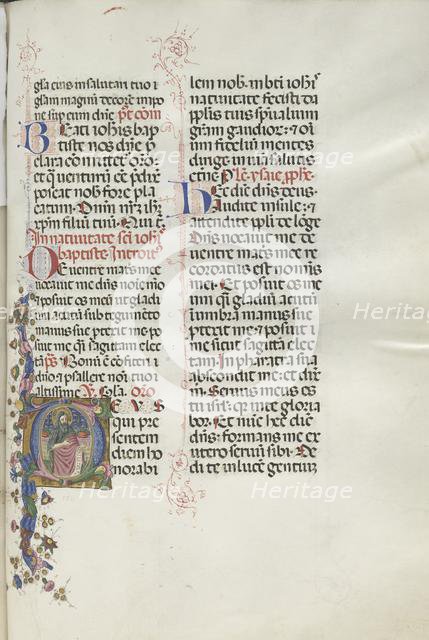 gl̄a eius in salutari tuo:
gl̄am magnū decorē impo
ne sup eum dn̄e. p̄t com
Beati ioh̄is bap
tiste nos dn̄e p̄
clara comitet̄ oro:
et quē venturū cē p̄dixit
poscat nob̄ fore pla
catum. Dn̄m n̄r̄m ih̄m
xp̄m filiū tuū. Qui t̄.
In nativitate sc̄i ioh̄is
baptiste. Introit̄
De ventre matris mee
vocavit me dn̄s noīe meo
et posuit os meū ut gladiū
acutū sub tegumēto
manus sue p̄texit me po
suit me quasi sagittam elec
tam. p̄s. Bonū ē confiteri
dn̄o: et psallere nōi tuo
altissime. V̄. Gl̄a. Oro
Deus
qui pre
sentem
diem ho
norabi
lem nob̄ in bt̄i ioh̄is
nativitate fecisti: da
pplis tuis spūalium
gr̄am gaudior̄: et oīm
fidelium mentes
dirige in viā salutis
etne. Lc̄. ysaie pphe.
Hec dic̄ dn̄s deus.
Audite insule: et
attendite ppli de longe
Dn̄s ab utero vocavit me de
ventre matris mee re
cordatus est nōinis
mei. Et posuit os me
um q̄si gladiū acutū
in umbra manus sue
ptexit me: et posuit me
sicut sagittā elec
tam. In pharetra sua
abscondit me: et dix̄
m̄. Servus meus es
tu isrl̄: q̄r in te gloria
bor. Et nūc hec dic̄
dn̄s: formans me ex
utero servū sibi. De
di te in lucē gentium
Heritage
Images
Heritage
Images
Heritage
Images
Heritage
Images